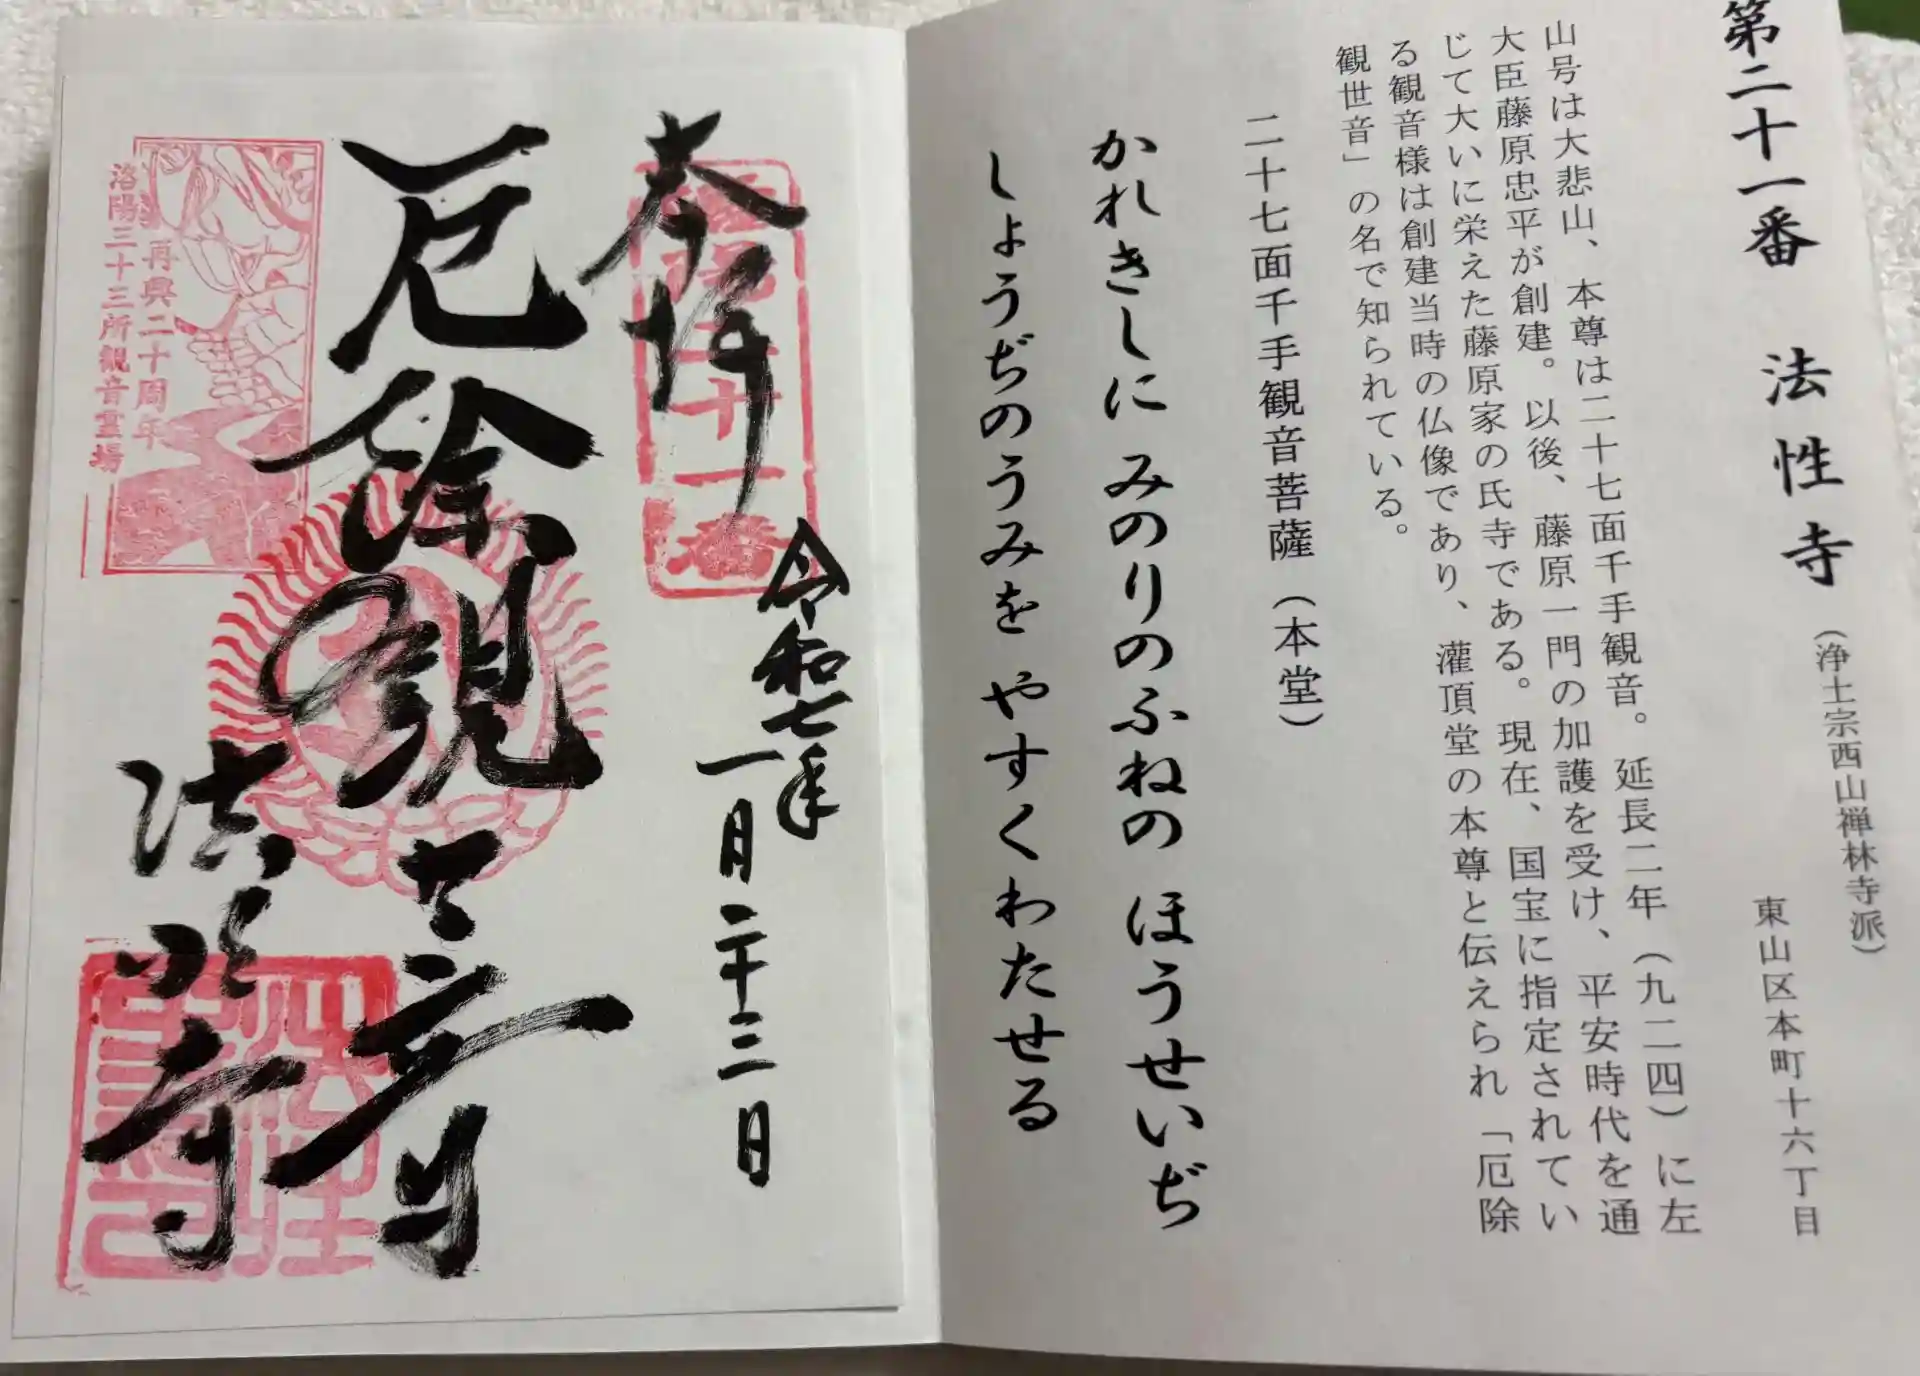 第二十一番 法性寺(浄土宗西山禅林寺派)
東山区本町十六丁目
山号は大悲山、本尊は二十七面千手観音。延長二年(九二四)に左
大臣藤原忠平が創建。以後、藤原一門の加護を受け、平安時代を通
じて大いに栄えた藤原家の氏寺である。現在、国宝に指定されてい
る観音様は創建当時の仏像であり、灌頂堂の本尊と伝えられ「厄除
観世音」の名で知られている。
二十七面千手観音菩薩(本堂)
かれきしに みのりのふねの ほうせいぢ
しょうぢのうみを やすくわたせる
奉拝
令和七年
一月二十三日
厄除観世音
法性寺
再興二十周年
洛陽三十三所観音霊場